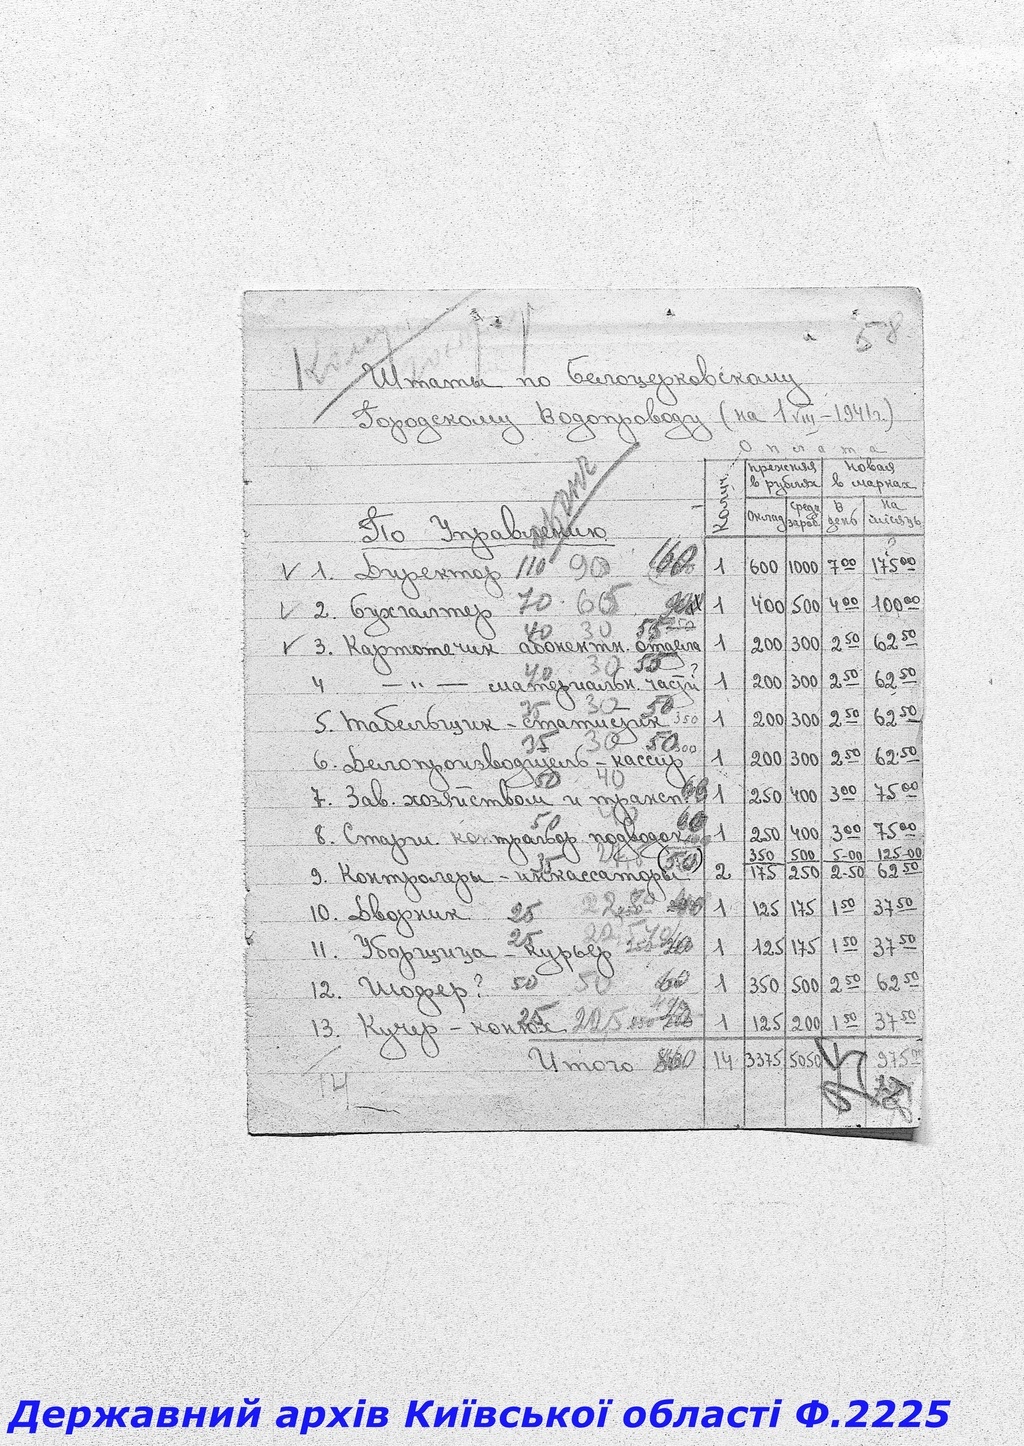 58
Штаты по Белоцерковскому
Городскому Водопроводу (на 1 VIII–1941г.)
Оплата
Колич. прежняя в рублях Новая в марках
Оклад средн. зараб. В день на місяць
По Управлению
1. Директор 110 90 160 1 600 1000 7 00 175 00
2. Бухгалтер 70 65 1 400 500 4 00 100 00
3. Картотечик абонентн. отдела 40 30 55 1 200 300 2 50 62 50
4 — „ — материальн. части 40 30 50 ? 1 200 300 2 50 62 50
5. Табельщик – статистик 35 30 50 350 1 200 300 2 50 62 50
6. Делопроизводитель – кассир 35 30 50 300 1 200 300 2 50 62 50
7. Зав. хозяйством и трансп. 50 40 60 1 250 400 3 00 75 00
8. Старш. контрольор подводок 50 60 1 250 400 3 00 75 00
350 500 5-00 125-00
9. Контролеры – инкассаторы 35 (50) 2 175 250 2-50 62 50
10. Дворник 25 1 125 175 1 50 37 50
11. Уборщица – курьер 25 1 125 175 1 50 37 50
12. Шофер? 50 50 60 1 350 500 2 50 62 50
13. Кучер – конюх 25 22,5 1 125 200 1 50 37 50
Итого 14 3375 5050 975
14
Державний архів Київської області Ф.2225